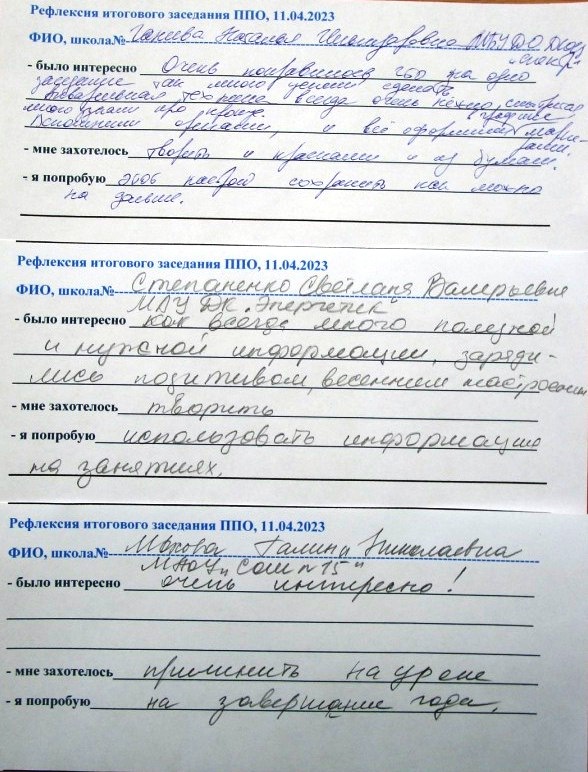 Рефлексия итогового заседания ППО, 11.04.2023
ФИО, школа№ Наталья МБУ ДО
- было интересно Очень понравилось, что на одно
заседание так много успели сделать.
Акварельная техника всегда очень нежно смотрится
много узнали про
Вспомнили оригами, и всё оформили
- мне захотелось творить и красками и из бумаги.
- я попробую этот настрой сохранить как можно
на дольше.
Рефлексия итогового заседания ППО, 11.04.2023
ФИО, школа№ Степаненко Светлана Валерьевна
МАУ ДК "Энергетик"
- было интересно как всегда много полезной
и нужной информации, заряди-
лись позитивом, весенним настроением
- мне захотелось творить
- я попробую использовать информацию
на занятиях.
Рефлексия итогового заседания ППО, 11.04.2023
ФИО, школа№ Галина Николаевна
МАОУ "СОШ №15"
- было интересно очень интересно!
- мне захотелось применить на уроке
- я попробую на завершание года.